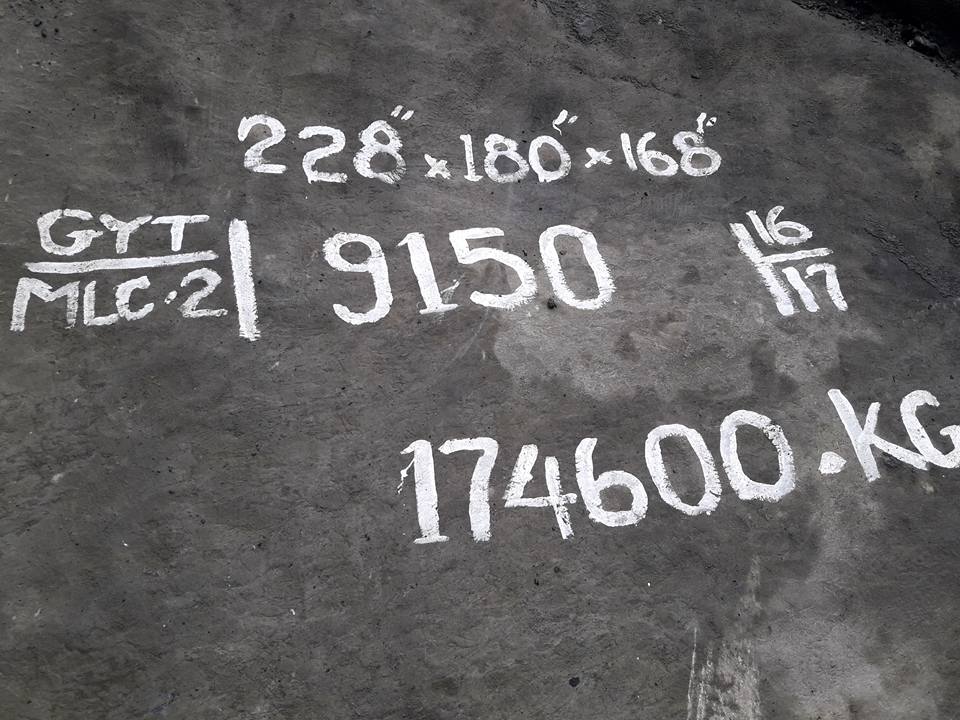 228" x 180" x 168"
GYT 9150 16
MLC.2 17
174600.KG